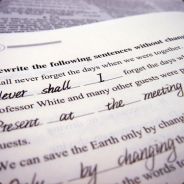 ewrite the following sentences without chang
all never forget the days when we were together
Never shall I
never forget the days when
rofessor White and many other guests were p
Present at the meeting
uests.
We can save the Earth only by chang
by changing
the words